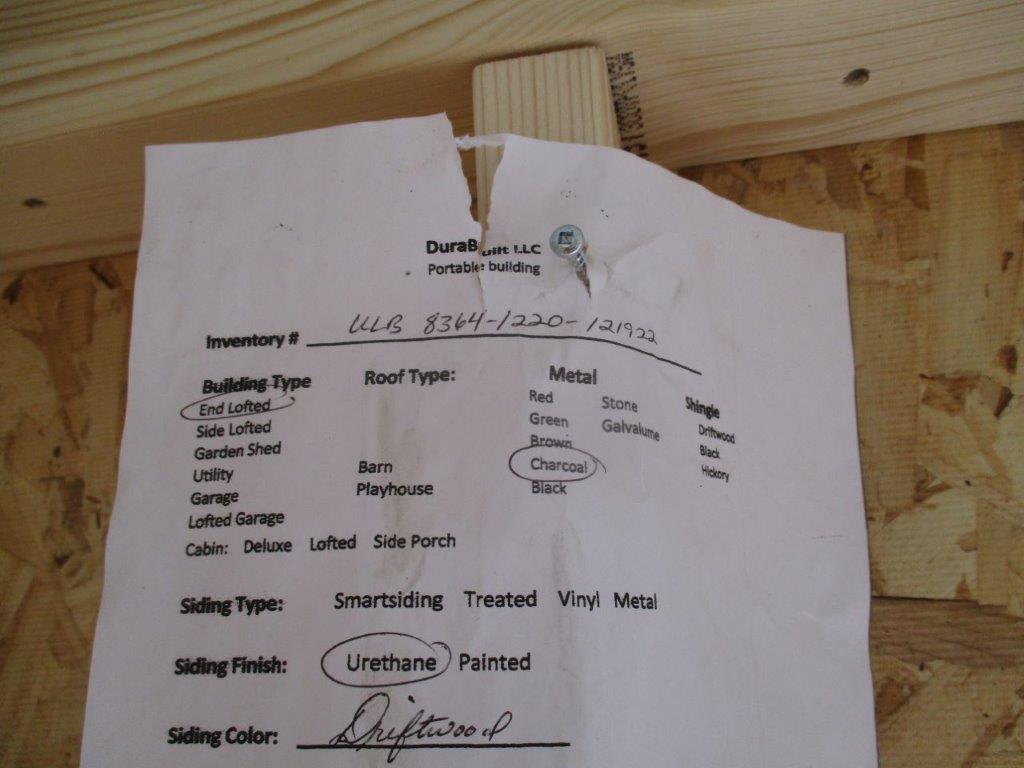 DuraBuilt LLC
Portable building
Inventory # ULB 8364-1220-121922
Building Type Roof Type: Metal Shingle
End Lofted Red Stone Driftwood
Side Lofted Green Galvalume Black
Garden Shed Brown Hickory
Utility Barn Charcoal
Garage Playhouse Black
Lofted Garage
Cabin: Deluxe Lofted Side Porch
Siding Type: Smartsiding Treated Vinyl Metal
Siding Finish: Urethane Painted
Siding Color: Driftwood